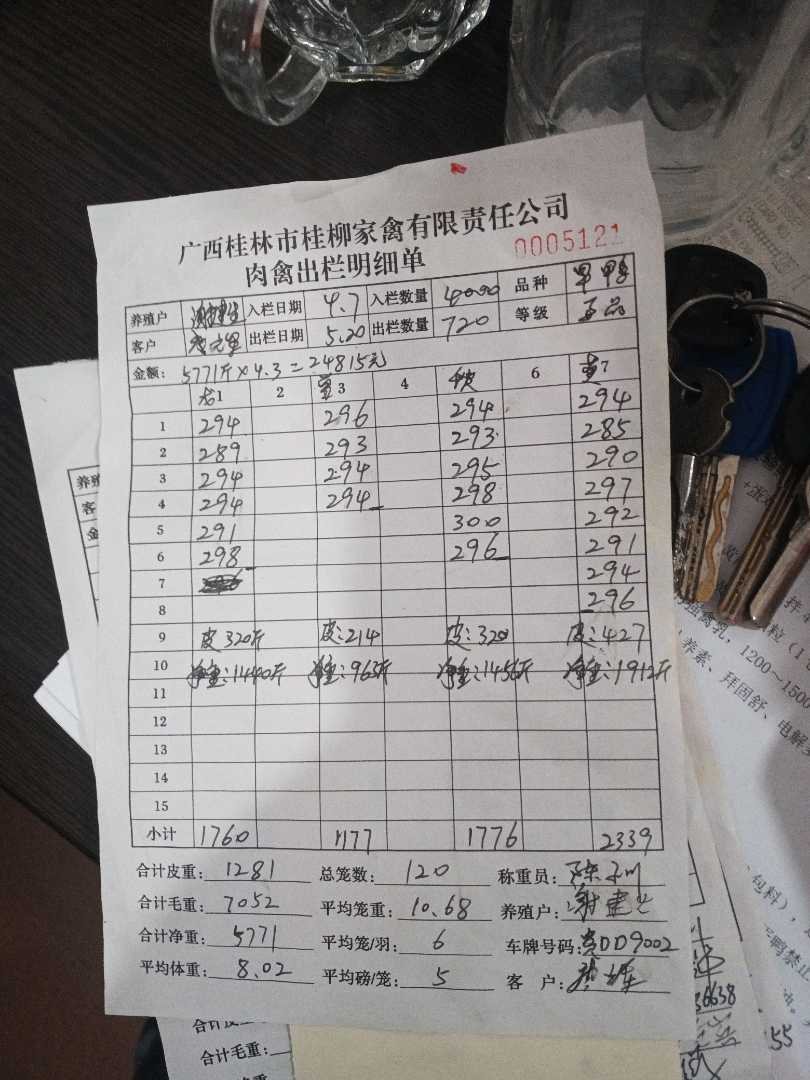 广西桂林市桂柳家禽有限责任公司
肉禽出栏明细单 0005121
养殖户 入栏日期 4.7 入栏数量 4000 品种 旱鸭
客户 出栏日期 5.20 出栏数量 720 等级
金额: 5771斤×4.3=24815元
1 2 3 4 6 7
1 294 296 294 294
2 289 293 293 285
3 294 294 295 290
4 294 294 298 297
5 291 300 292
6 298 296 291
7 294
8 296
9 皮320斤 皮:214 皮:320 皮:427
10 净重:1440斤 净重:963斤 净重:1456斤 净重:1912斤
11
12
13
14
15
小计 1760 1177 1776 2339
合计皮重: 1281 总笼数: 120 称重员:
合计毛重: 7052 平均笼重: 10.68 养殖户: 谢建
合计净重: 5771 平均笼/羽: 6 车牌号码: 贵DD9002
平均体重: 8.02 平均磅/笼: 5 客户:
合计毛重: